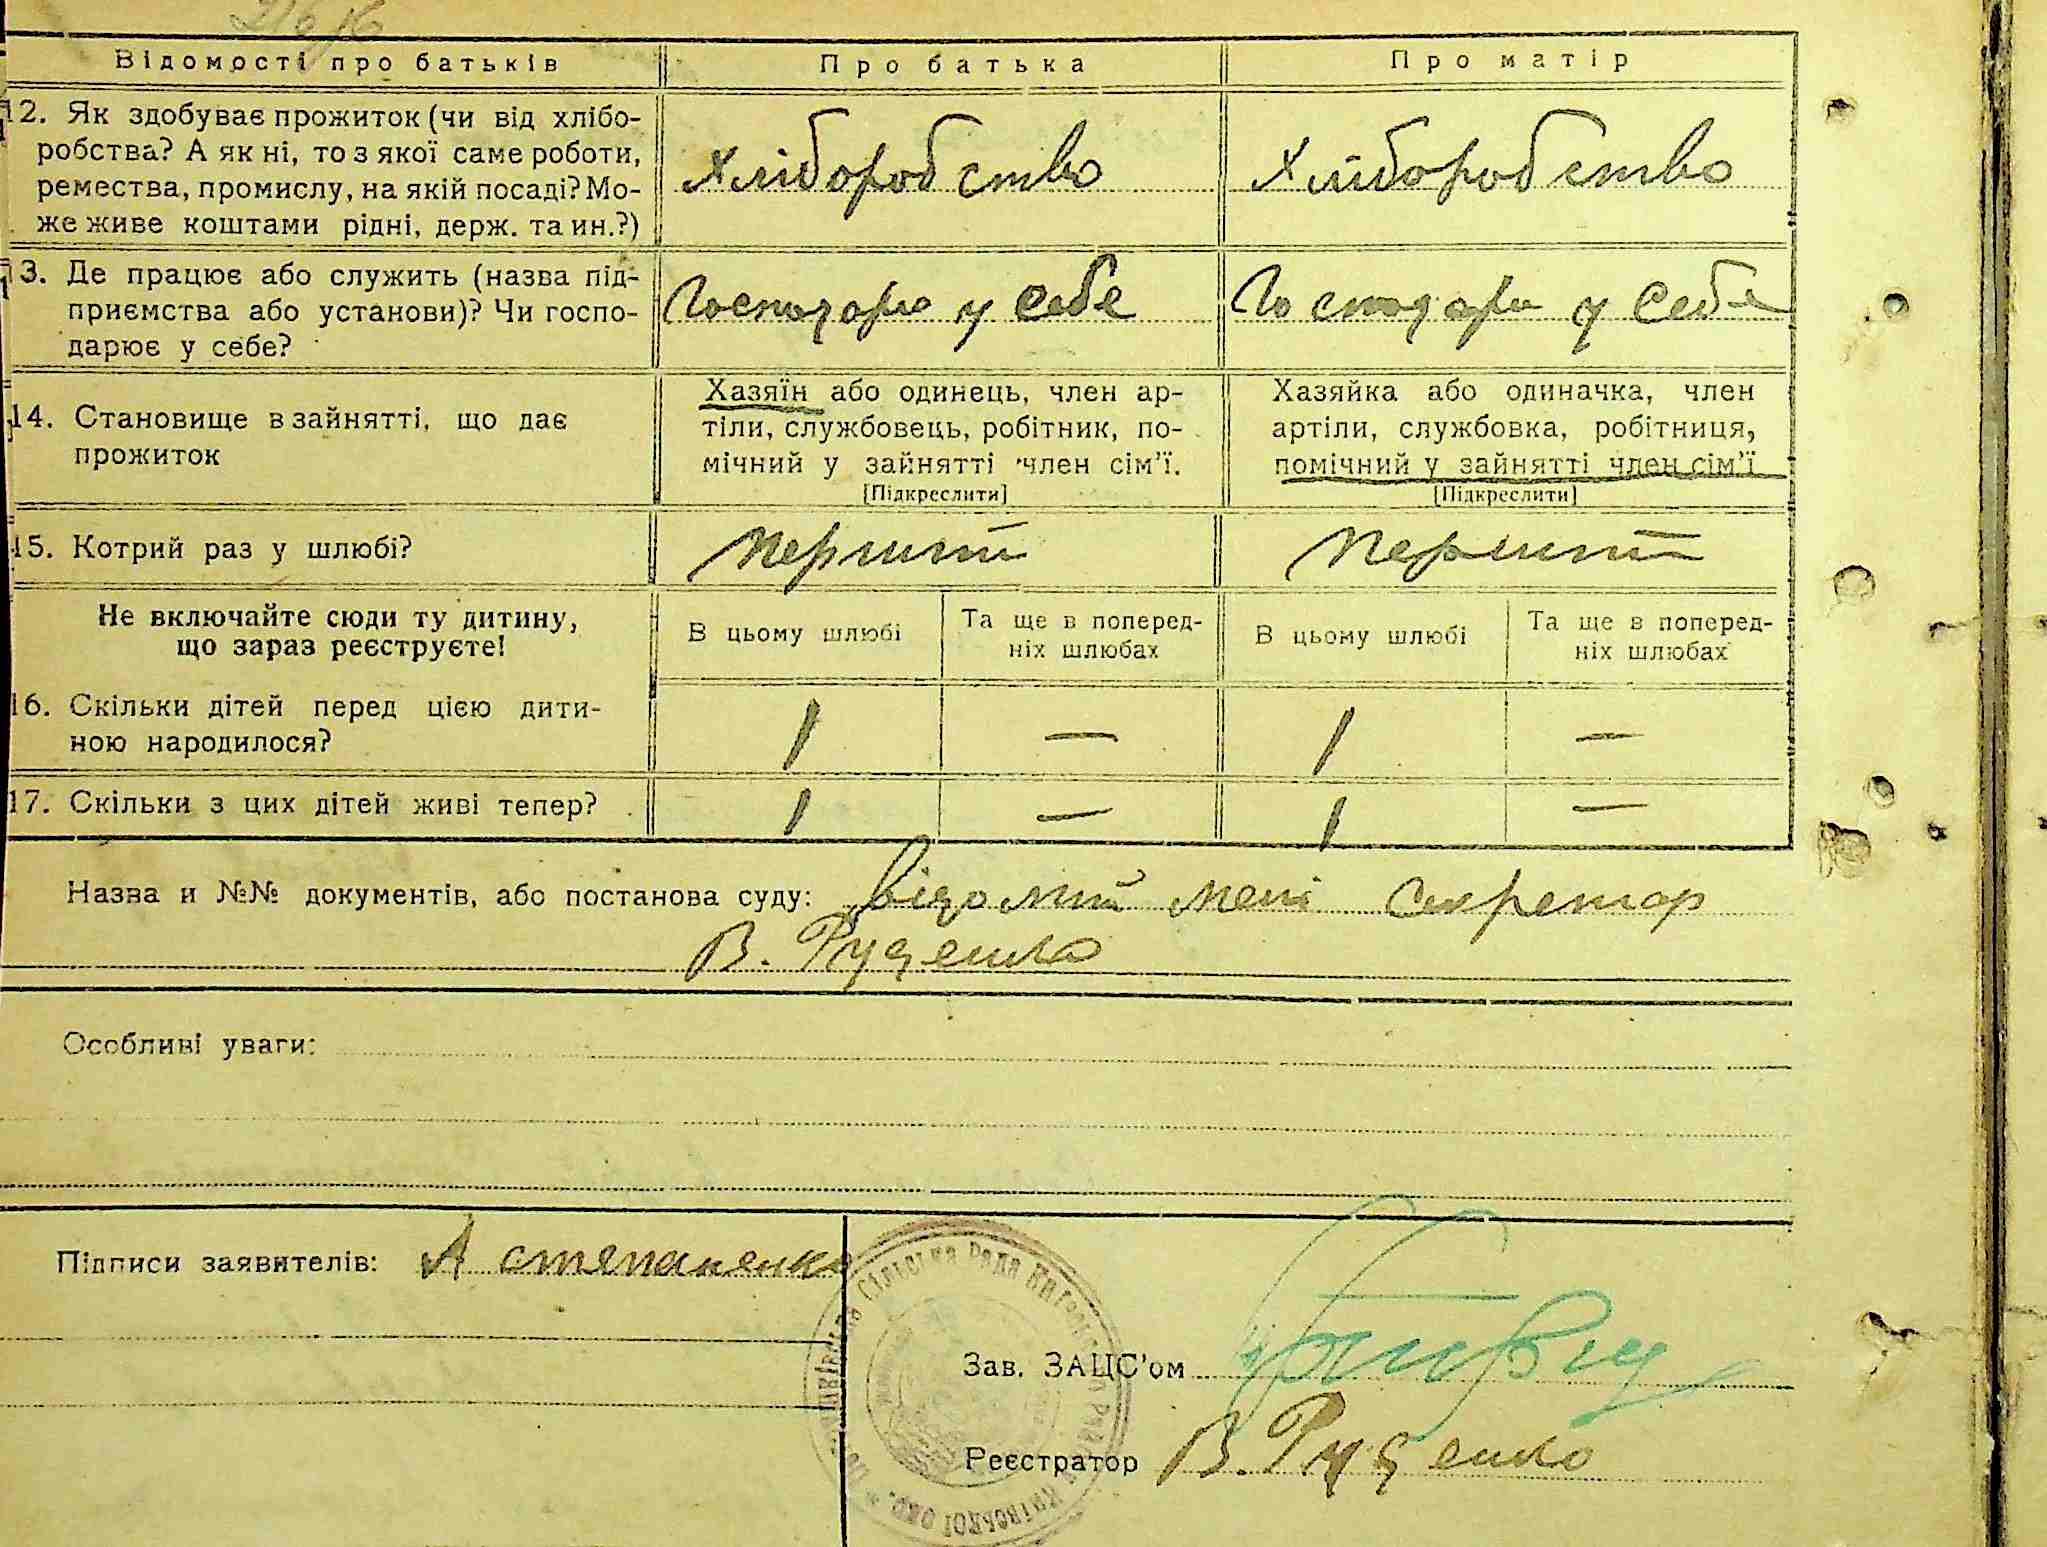 Відомості про батьків
Про батька
Про матір
12. Як здобуває прожиток (чи від хлібо-
робства? А як ні, то з якої саме роботи,
ремества, промислу, на якій посаді? Мо-
же живе коштами рідні, держ. та ин.?)
Хліборобство
Хліборобство
13. Де працює або служить (назва під-
приємства або установи)? Чи госпо-
дарює у себе?
Господарю у себе
Господарю у себе
14. Становище в зайнятті, що дає
прожиток
Хазяїн або одинець, член ар-
тіли, службовець, робітник, по-
мічний у зайнятті член сім'ї.
[Підкреслити]
Хазяйка або одиначка, член
артіли, службовка, робітниця,
помічний у зайнятті член сім'ї
[Підкреслити]
15. Котрий раз у шлюбі?
перший
перший
Не включайте сюди ту дитину,
що зараз реєструєте!
В цьому шлюбі
Та ще в поперед-
ніх шлюбах
В цьому шлюбі
Та ще в поперед-
ніх шлюбах
16. Скільки дітей перед цією дити-
ною народилося?
1
—
1
—
17. Скільки з цих дітей живі тепер?
1
—
1
—
Назва и №№ документів, або постанова суду: відомий мені секретар
В. Руденко
Особливі уваги:
Підписи заявителів: А степаненко
Сільська Рада
Київської окр.
Зав. ЗАЦС'ом
Реєстратор В. Руденко